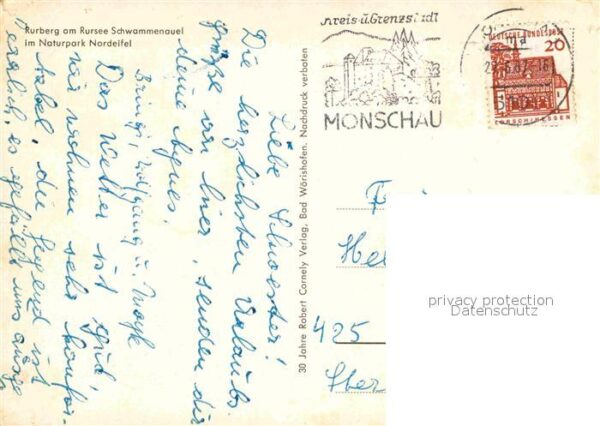 Rurberg am Rursee Schwammenauel
im Naturpark Nordeifel
Kreis-u.Grenzstadt
MONSCHAU
DEUTSCHE BUNDESPOST
20
LORSCH/HESSEN
30 Jahre Robert Cornely Verlag, Bad Wörishofen. Nachdruck verboten
Liebe Schwester!
Die herzlichsten Urlaubs
grüße von hier, senden dir
deine Agnes,
Wolfgang u.
Das Wetter ist gut,
wir wohnen sehr komfor-
tabel, die Gegend ist
herrlich, es gefällt uns
425
privacy protection
Datenschutz